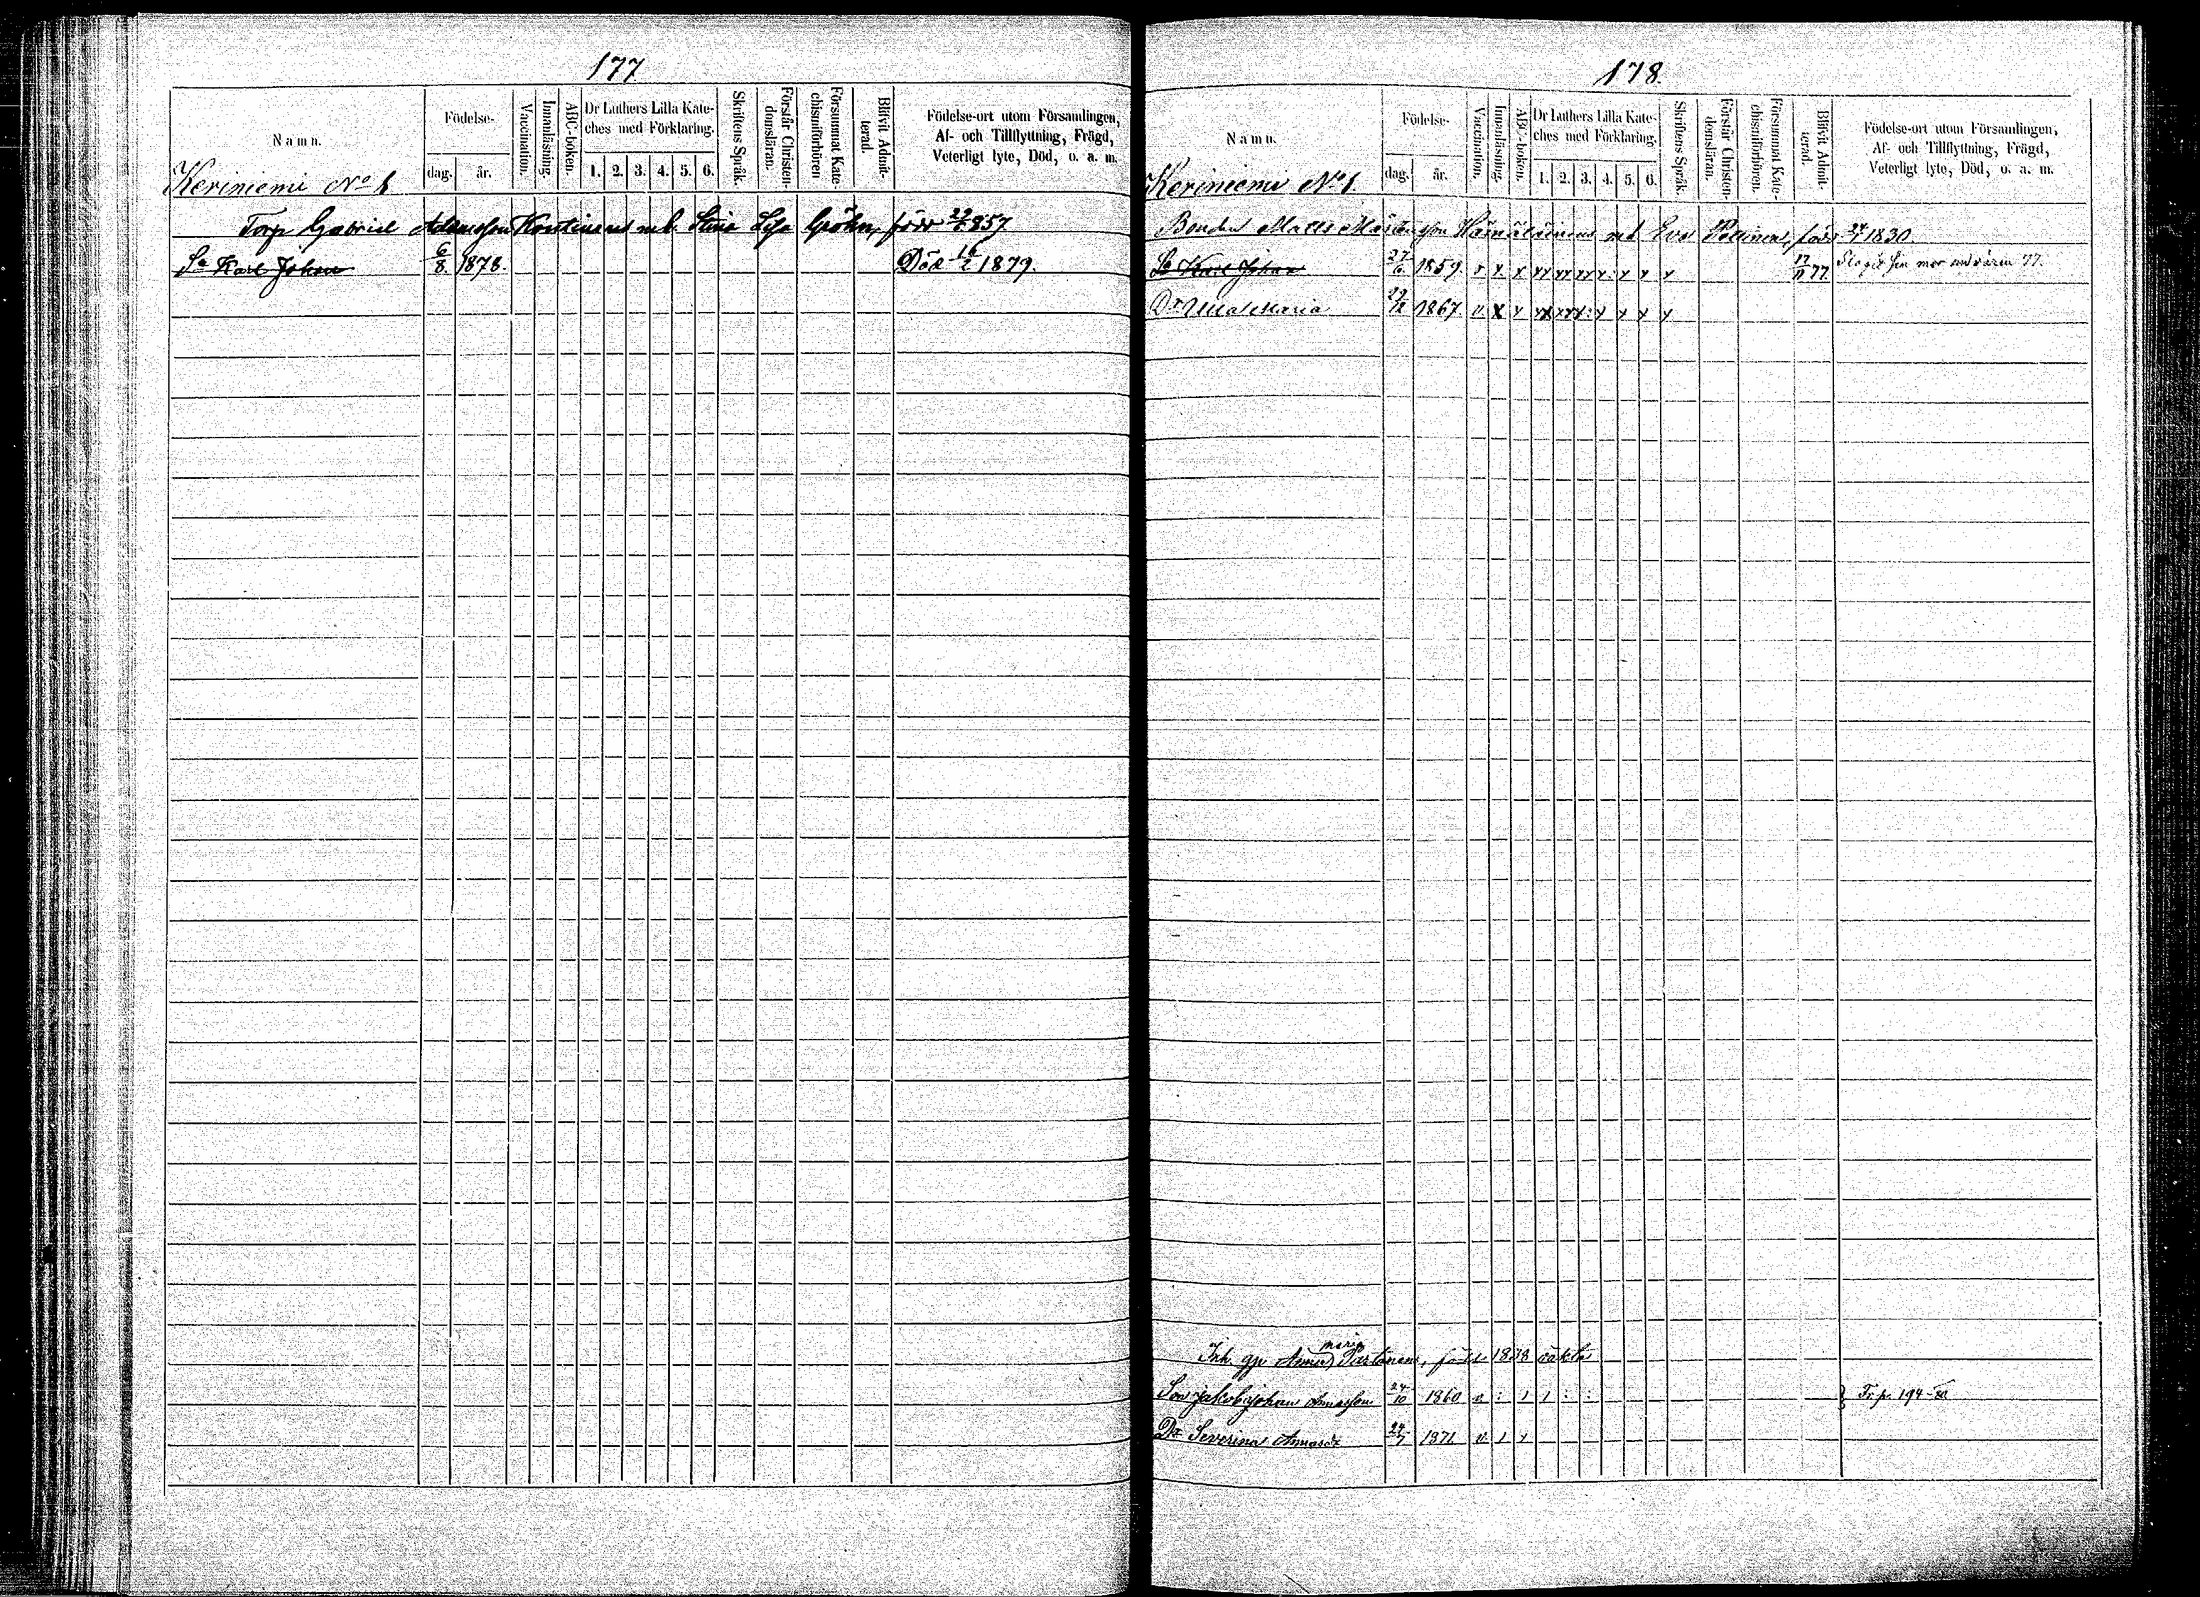 177
Namn.
Födelse-
dag.
år.
Vaccination.
Innanläsning.
ABC-boken.
Dr Luthers Lilla Kate-
ches med Förklaring.
1. 2. 3. 4. 5. 6.
Skriftens Språk.
Förstår Christen-
domsläran.
Försummat Kate-
chismiförhören
Blifvit Admit-
terad.
Födelse-ort utom Församlingen,
Af- och Tillflyttning, Frägd,
Veterligt lyte, Död, o. a. m.
Keriniemi No 1
Torp Gabriel Adamsson Kontinens m. Stina Lisa Gröhn, född 857
So Karl Johan 6/8 1878. Död 16/2 1879.
178.
Namn.
Födelse-
dag.
år.
Vaccination.
Innanläsning.
ABC-boken.
Dr Luthers Lilla Kate-
ches med Förklaring.
1. 2. 3. 4. 5. 6.
Skriftens Språk.
Förstår Christen-
domsläran.
Försummat Kate-
chismiförhören.
Blifvit Admit-
terad.
Födelse-ort utom Församlingen,
Af- och Tillflyttning, Frägd,
Veterligt lyte, Död, o. a. m.
Keriniemi No 1.
Bonden Matts Mårtensson Hämäläinens m Eva Pellinen, föds 1830.
So Karl Johan 27/6 1859. v x x xx xx xx x x x x 77
Dr Ulla Maria 29/12 1867 v x x x x x x
maria
Inh. gp Anna Partanens, född 1838 oäkta
Son Jakob Johan Annasson 24/10 1860 v : 1 1 : : Tr. p. 194-80
Dr Severina Annasdr 24/7 1871 v 1 1